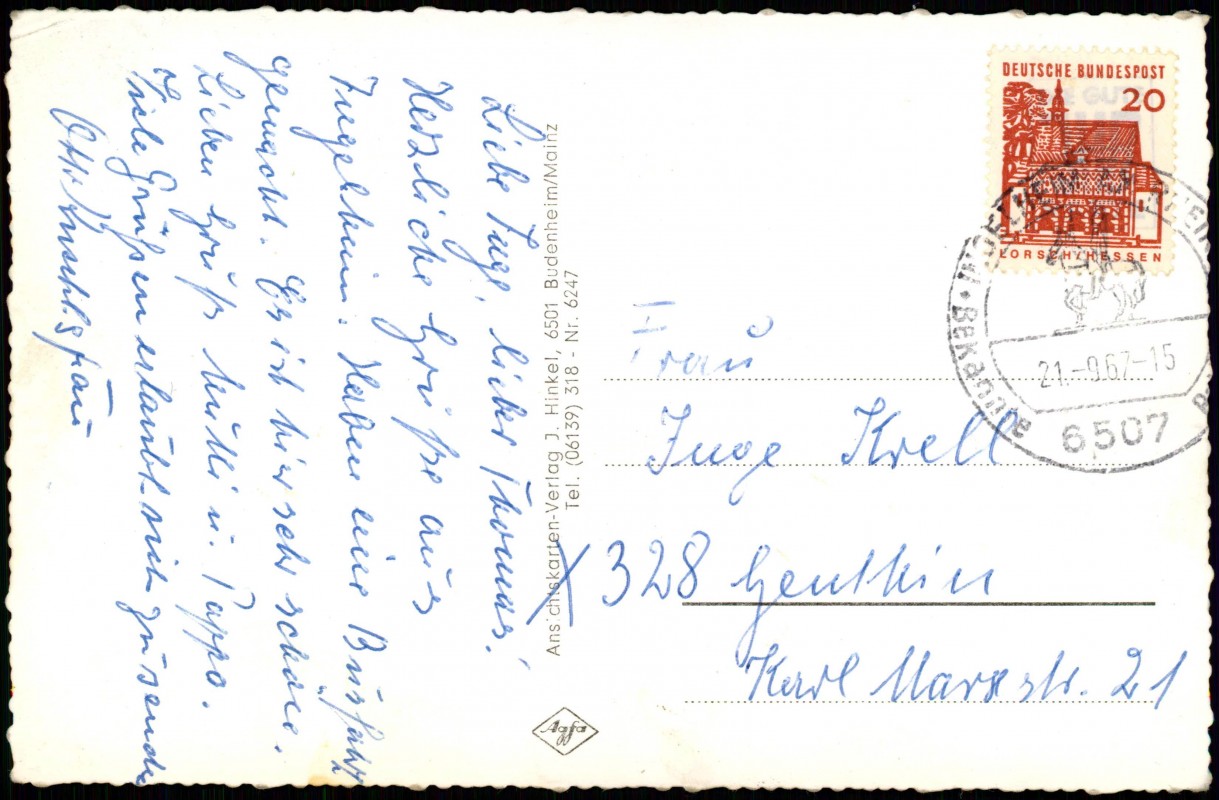 Liebe Inge, lieber Thomas!
Herzliche Grüße aus
Ingelheim. Haben eine Busfahrt
gemacht. Es ist hir sehr schöne.
Lieben Gruß Mutti u. Pappa.
Viele Grüße erlaubt sich zu senden
Otto
Ansichtskarten-Verlag J. Hinkel, 6501 Budenheim/Mainz
Tel. (06139) 318 - Nr. 6247
Agfa
DEUTSCHE BUNDESPOST
20
LORSCH/HESSEN
INGELHEIM
21.-9.67-15
6507
Frau
Inge Krell
X 328 Genthin
Karl Marxstr. 21